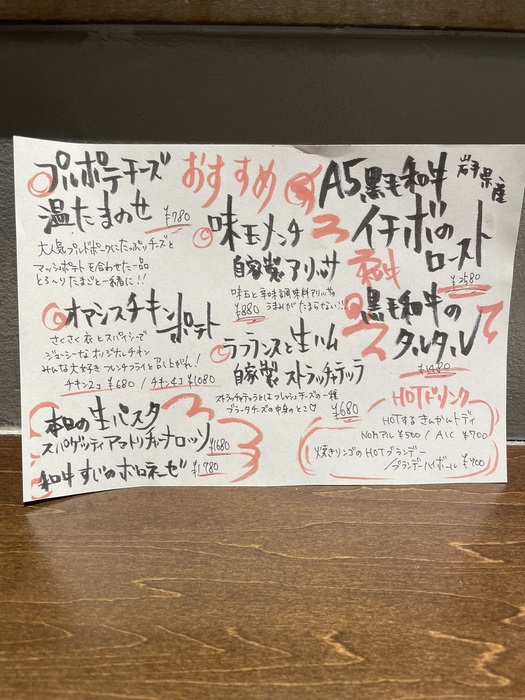 おすすめ
プルポテチーズ
温たまのせ
¥780
大人気プルドポークにたっぷりチーズと
マッシュポテトを合わせた一品
とろ〜りたまごと一緒に!!
オアシスチキン
ポテト
さくさく衣とスパイシーで
ジューシーなオリジナルチキン
みんな大好きフレンチフライと召し上がれ!
チキン2コ ¥680 / チキン4コ ¥1080
味玉メンチ
自家製アリッサ
¥880
味玉と辛味調味料アリッサの
うまみがたまらない!!
ラフランスと生ハム
自家製ストラッチャテッラ
ストラッチャテッラとはフレッシュチーズの一種
ブラータチーズの中身のとこ♡
¥680
A5黒毛和牛
岩手県産
イチボの
ロースト
¥2580
和牛
黒毛和牛の
タルタル
¥1480
本日の生パスタ
スパゲッティアマトリチャーナロッソ
¥1680
和牛すじのボロネーゼ
¥1780
HOTドリンク
HOTするさんかんトディ
NonアルL ¥500 / Alc ¥700
焼きリンゴのHOTブランデー
/ブランデーハイボール ¥700